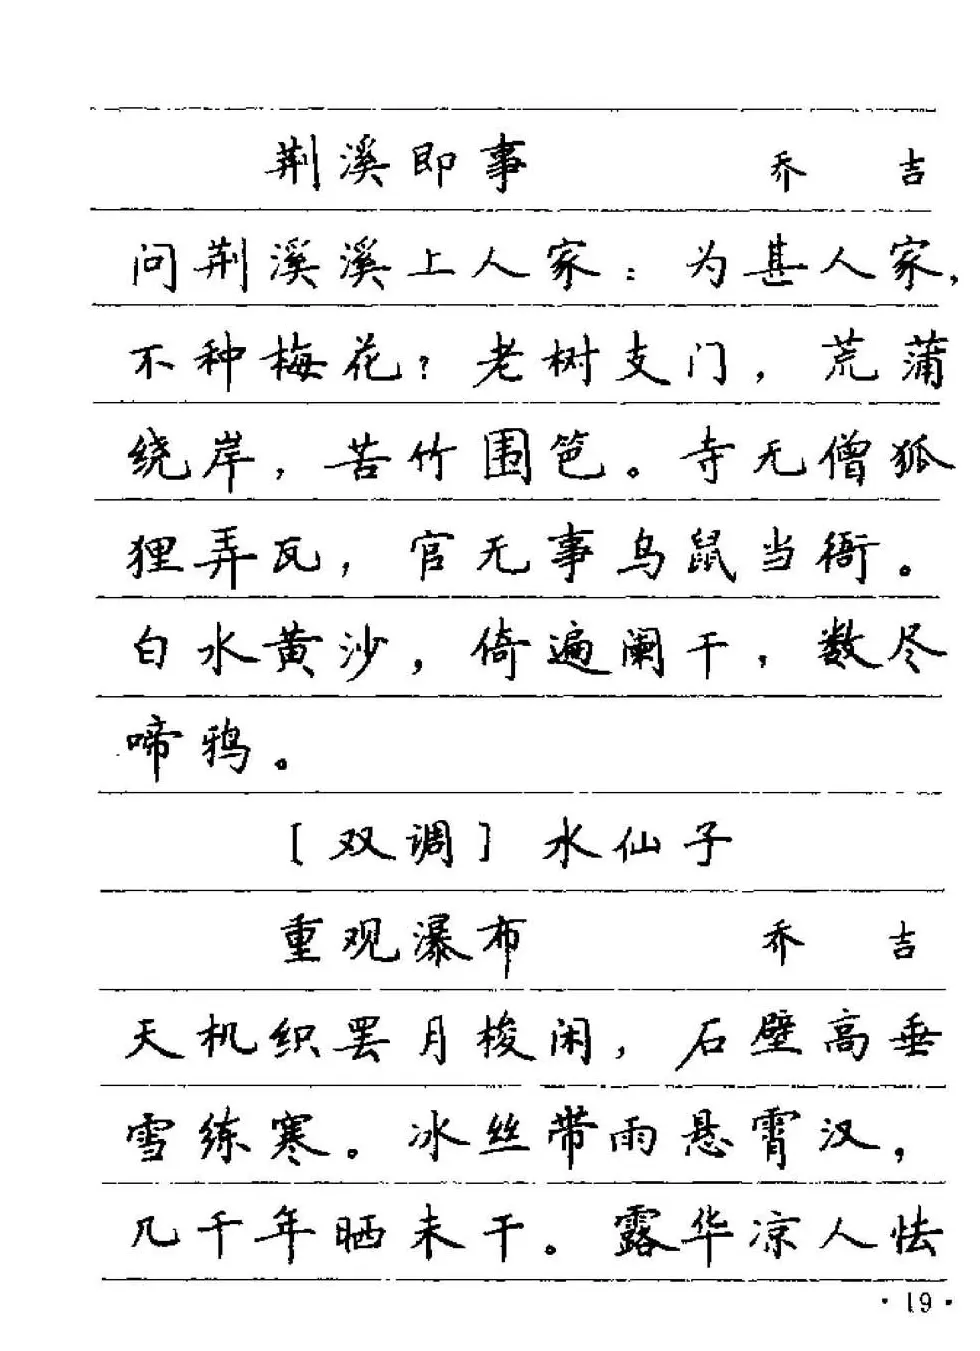 荆溪即事 乔吉
问荆溪溪上人家：为甚人家，
不种梅花？老树支门，荒蒲
绕岸，苦竹围笆。寺无僧狐
狸弄瓦，官无事乌鼠当衙。
白水黄沙，倚遍阑干，数尽
啼鸦。
［双调］水仙子
重观瀑布 乔吉
天机织罢月梭闲，石壁高垂
雪练寒。冰丝带雨悬霄汉，
几千年晒未干。露华凉人怯
·19·